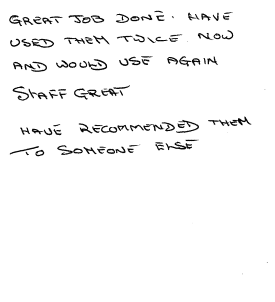 GREAT JOB DONE. HAVE
USED THEM TWICE NOW
AND WOULD USE AGAIN
STAFF GREAT
HAVE RECOMMENDED THEM
TO SOMEONE ELSE